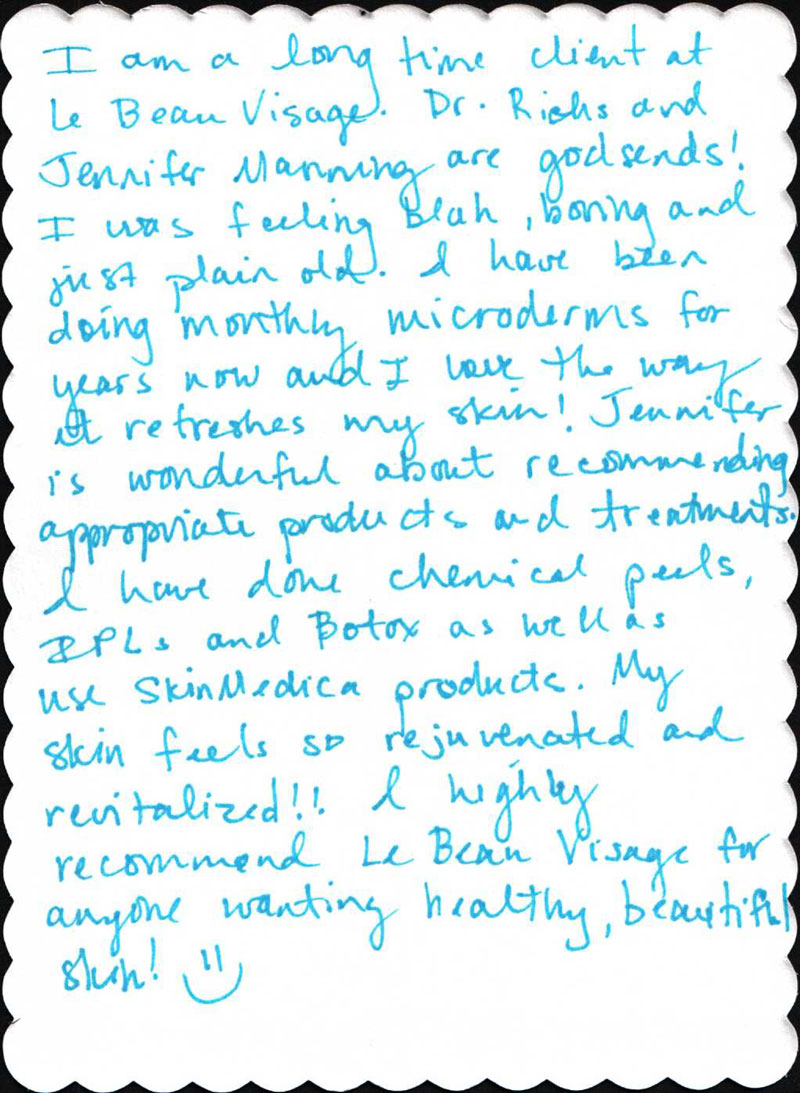 I am a long time client at
Le Beau Visage. Dr. Riahs and
Jennifer Manning are godsends!
I was feeling Blah, boring and
just plain old. I have been
doing monthly microderms for
years now and I love the way
it refreshes my skin! Jennifer
is wonderful about recommending
appropriate products and treatments.
I have done chemical peels,
IPLs and Botox as well as
use SkinMedica products. My
skin feels so rejuvenated and
revitalized!! I highly
recommend Le Beau Visage for
anyone wanting healthy, beautiful
skin!